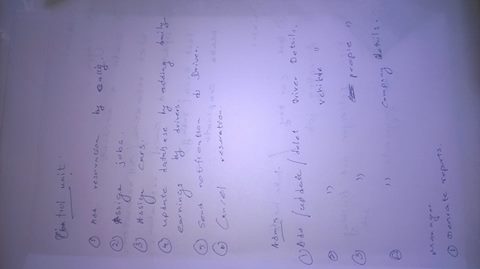 Control unit.
① Add reservation by calling.
② Assign jobs.
③ Assign cars.
④ update database by adding daily
earnings by drivers
⑤ Send notification to Driver.
⑥ Cancel reservation
Admin
① Add / update / delet Driver Details.
② " vehicle "
③ " people "
④ " company details.
manager
① Generate reports.